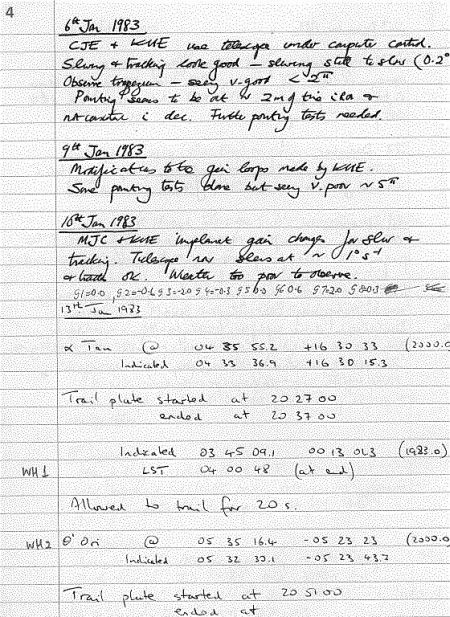 4
6th Jan 1983
CJE + KME use telescope under computer control.
Slewing & tracking look good – slewing still to slow (0.2°
Observe trapezium – seeing v. good < 2"
Pointing seems to be out ~ 2m of time in RA &
in dec. Further pointing tests needed.
9th Jan 1983
Modifications to the gain loops made by KME.
Some pointing tests done but seeing v. poor ~ 5"
10th Jan 1983
MJC + KME implement gain changes for slew &
tracking. Telescope now slews at ~ 1° s-1
& tracks OK. Weather too poor to observe.
13th Jan 1983
α Tau @ 04 35 55.2 +16 30 33 (2000.0
Indicated 04 33 36.9 +16 30 15.3
Trail plate started at 20 27 00
ended at 20 37 00
Indicated 03 45 09.1 00 13 (1983.0)
WH1 LST 04 00 48 (at end)
Allowed to trail for 20 s.
WH2 θ' Ori @ 05 35 16.4 -05 23 23 (2000.0
Indicated 05 32 -05 23 43.7
Trail plate started at 20 51 00
ended at